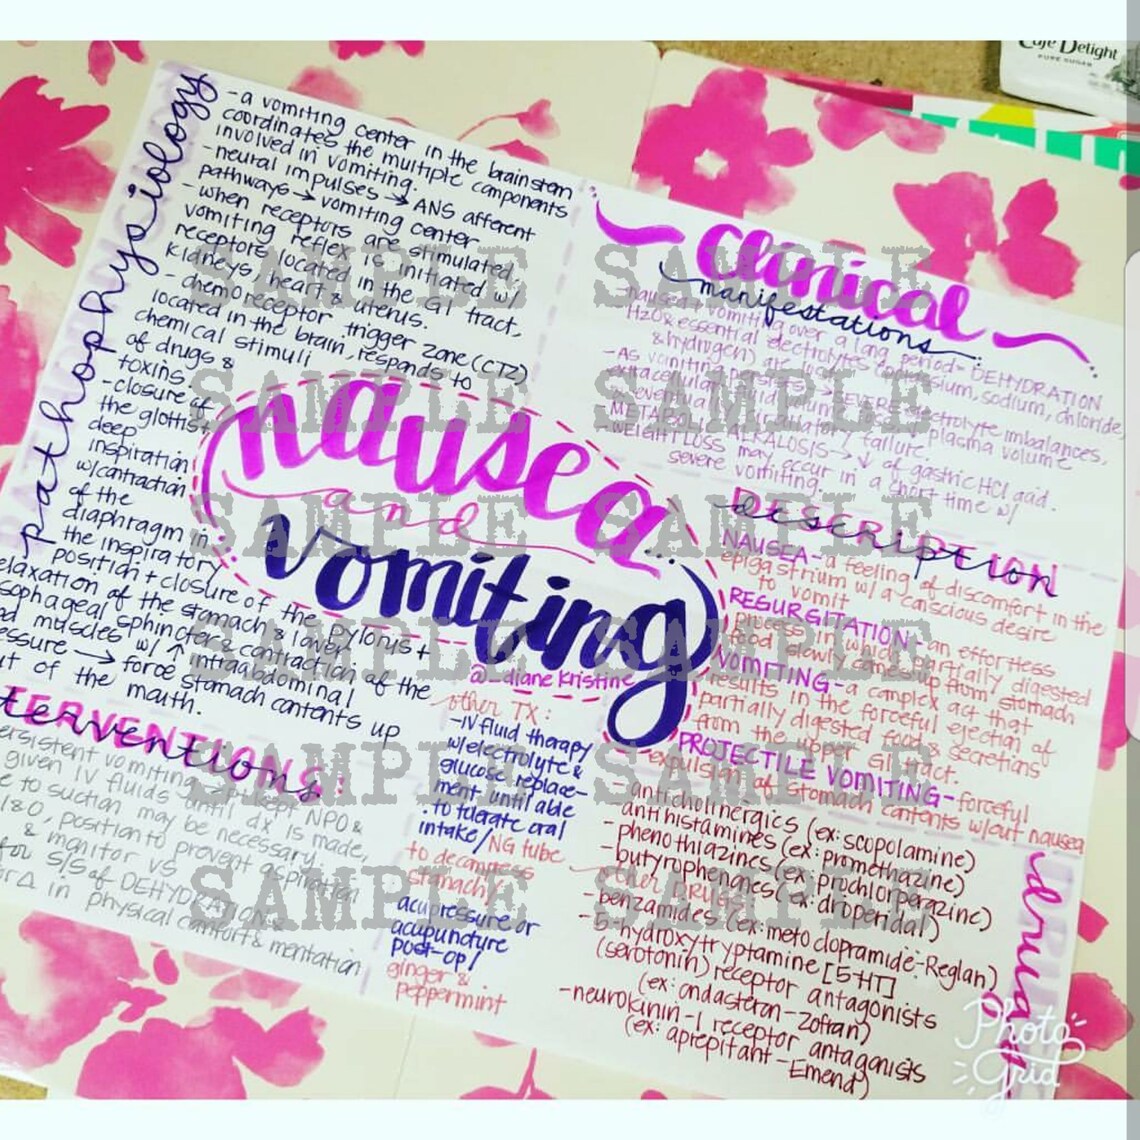 Cafe Delight
PURE SUGAR
pathophysiology
-a vomiting center in the brainstem
coordinates the multiple components
involved in vomiting.
-neural impulses → ANS afferent
pathways → vomiting center
-when receptors are stimulated,
vomiting reflex is initiated w/
receptors located in the GI tract,
kidneys, heart & uterus.
-chemoreceptor trigger zone (CTZ)
located in the brain, responds to
chemical stimuli
of drugs &
toxins.
-closure of
the glottis +
deep
inspiration
w/contraction
of the
diaphragm in
the inspiratory
position + closure of the pylorus +
relaxation of the stomach & lower
esophageal sphincter & contraction of the
muscles w/ ↑ intraabdominal
pressure → force stomach contents up
out of the mouth.
nausea
and
vomiting
@_dianekristine
Clinical
manifestations
-nausea + vomiting over a long period = DEHYDRATION
H2O & essential electrolytes (potassium, sodium, chloride,
& hydrogen) are lost
-As vomiting persists → SEVERE electrolyte imbalances,
extracellular fluid volume plasma volume
eventual circulatory failure.
METABOLIC ALKALOSIS → ↓ of gastric HCl acid.
-WEIGHT LOSS may occur in a short time w/
severe vomiting.
DESCRIPTION
description
NAUSEA - a feeling of discomfort in the
epigastrium w/ a conscious desire
to vomit
REGURGITATION - an effortless
process in which partially digested
food slowly comes up from stomach
VOMITING - a complex act that
results in the forceful ejection of
partially digested food & secretions
from the upper GI tract.
PROJECTILE VOMITING - forceful
expulsion of stomach contents w/out nausea
interventions:
persistent vomiting = NPO &
given IV fluids until dx is made,
to suction may be necessary.
I&O, position to prevent aspiration
& monitor VS
for S/S of DEHYDRATION &
for Δ in physical comfort & mentation
other TX:
-IV fluid therapy
w/electrolyte &
glucose replace-
ment until able
to tolerate oral
intake/NG tube
to decompress
stomach/
acupressure or
acupuncture
post-op/
ginger &
peppermint
drugs
-anticholinergics (ex: scopolamine)
-antihistamines (ex: promethazine)
-phenothiazines (ex: prochlorperazine)
-butyrophenones (ex: droperidal)
other DRUGS:
-benzamides (ex: metoclopramide-Reglan)
-5-hydroxytryptamine [5-HT]
(serotonin) receptor antagonists
(ex: ondasteron-zofran)
-neurokinin-1 receptor antagonists
(ex: aprepitant-Emend)
SAMPLE SAMPLE
SAMPLE SAMPLE
SAMPLE SAMPLE
SAMPLE SAMPLE
SAMPLE SAMPLE
SAMPLE SAMPLE
Photo
Grid